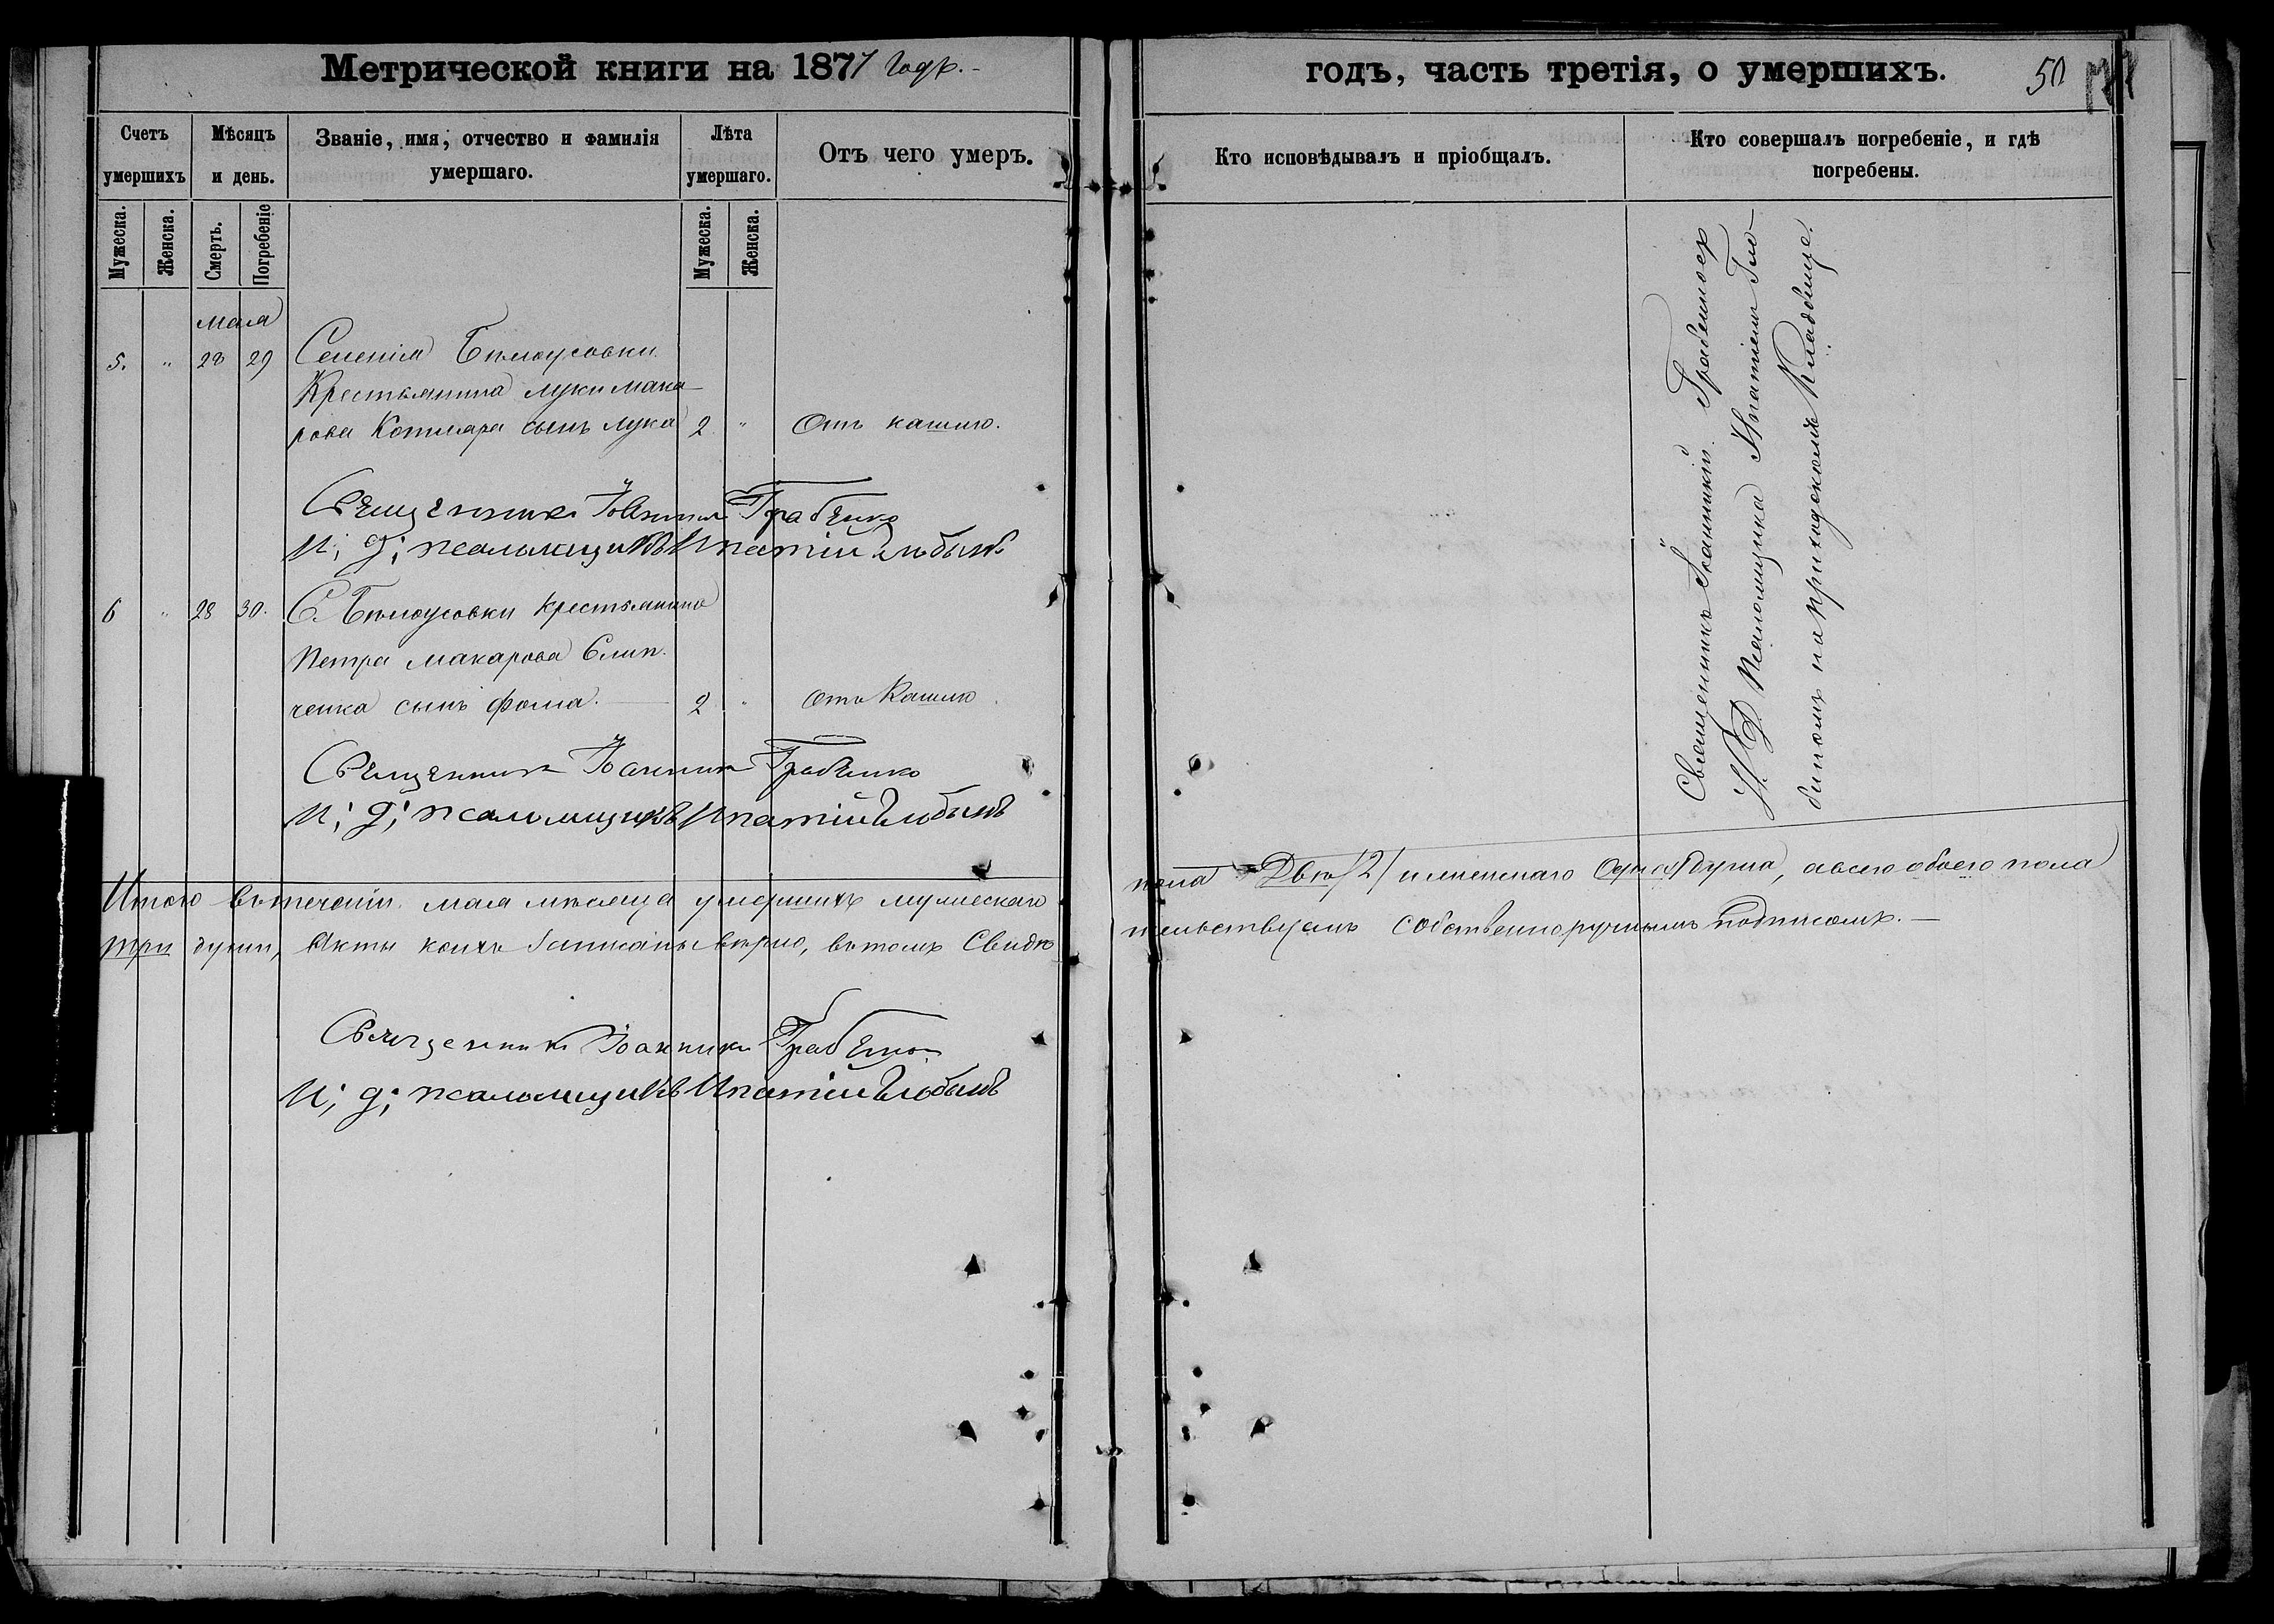 Метрической книги на 1877 годъ.
годъ, часть третія, о умершихъ.
50
Счетъ умершихъ
Мѣсяцъ и день.
Званіе, имя, отчество и фамилія умершаго.
Лѣта умершаго.
Отъ чего умеръ.
Кто исповѣдывалъ и пріобщалъ.
Кто совершалъ погребеніе, и гдѣ погребены.
Мужеска.
Женска.
Смерть.
Погребеніе
Мужеска.
Женска.
мая
5. " 28 29 Селенія Бѣлоусовки
Крестьянина Луки Мака-
рова Котляра сынъ Лука 2 " Отъ кашлю.
Священникъ Іоанникій Грабенко
И; д; псаломщикъ Ипатій Глобынъ
6 " 28 30. С. Бѣлоусовки крестьянина
Петра Макарова Слип-
ченка сынъ Фома. 2 " Отъ кашлю
Священникъ Іоанникій Грабенко
И; д; псаломщикъ Ипатій Глобынъ
Священникъ Іоанникій Грабенко съ
И. Д. Псаломщика Ипатіемъ Гло-
бинымъ на приходскомъ кладбище.
Итого въ теченіи мая мѣсяца умершихъ мужескаго
пола Двѣ /2/ и женскаго Одна душа, а всего обоего пола
три души, Акты коихъ записаны вѣрно, въ томъ Свидѣ
тельствуемъ собственноручнымъ подписомъ.
Священникъ Іоанникій Грабенко
И; д; псаломщикъ Ипатій Глобынъ